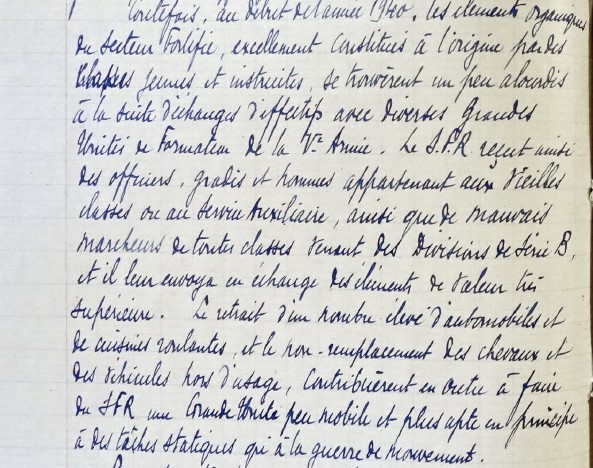 Toutefois, au début de l'année 1940, les éléments organiques
du Secteur Fortifié, excellement constitués à l'origine par des
classes jeunes et instruites, se trouvèrent un peu alourdis
à la suite d'échanges d'effectifs avec diverses Grandes
Unités de Formation de la Ve Armée. Le S.F.R. reçut ainsi
des officiers, gradés et hommes appartenant aux vieilles
classes ou au Service Auxiliaire, ainsi que de mauvais
marcheurs de toutes classes venant des Divisions de Série B,
et il leur envoya en échange des éléments de valeur très
supérieure. Le retrait d'un nombre élevé d'automobiles et
de cuisines roulantes, et le non-remplacement des chevaux et
des véhicules hors d'usage, contribuèrent en outre à faire
du SFR une Grande Unité peu mobile et plus apte en principe
à des tâches statiques qu'à la guerre de mouvement.